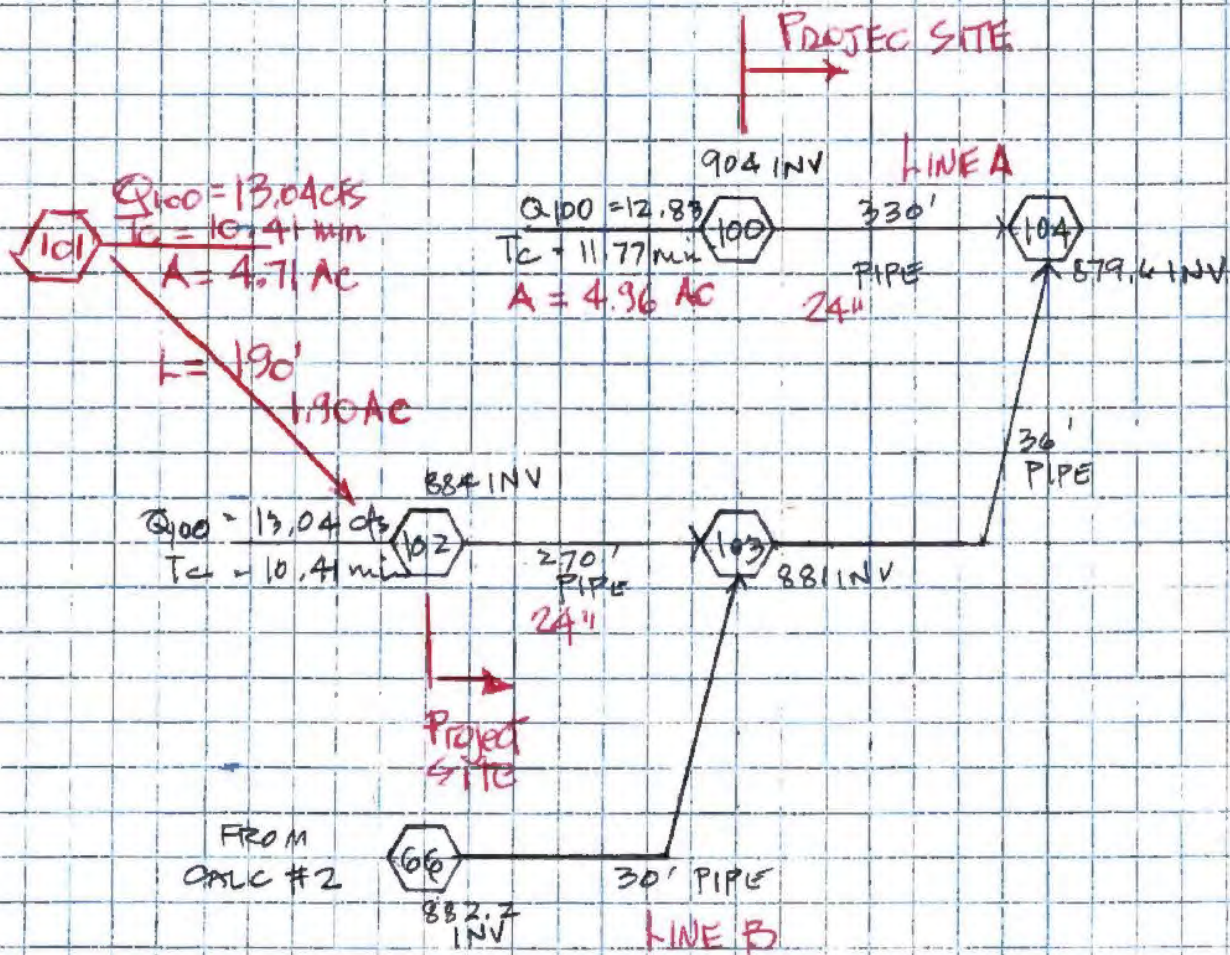 PROJEC SITE
904 INV
LINE A
Q100 = 13.04 cfs
Tc = 10.41 min
A = 4.71 Ac
101
Q100 = 12.83
Tc = 11.77 min
A = 4.96 Ac
100
330'
PIPE
24"
104
879.4 INV
L = 190'
1.90 Ac
36'
PIPE
884 INV
Q100 = 13.04 cfs
Tc = 10.41 min
102
270'
PIPE
24"
103
881 INV
Project
SITE
FROM
CALC #2
66
882.2
INV
30' PIPE
LINE B